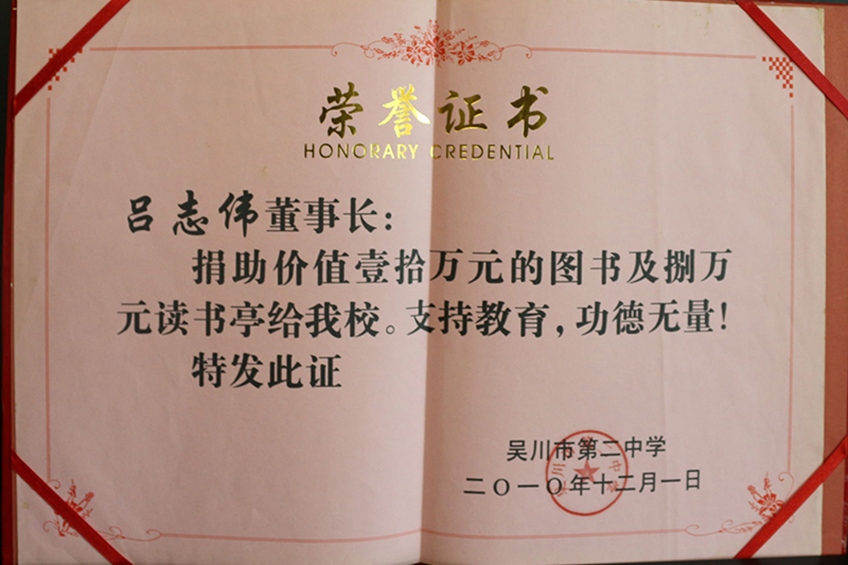 荣誉证书
HONORARY CREDENTIAL
吕志伟董事长：
捐助价值壹拾万元的图书及捌万
元读书亭给我校。支持教育，功德无量！
特发此证
吴川市第二中学
二〇一〇年十二月一日